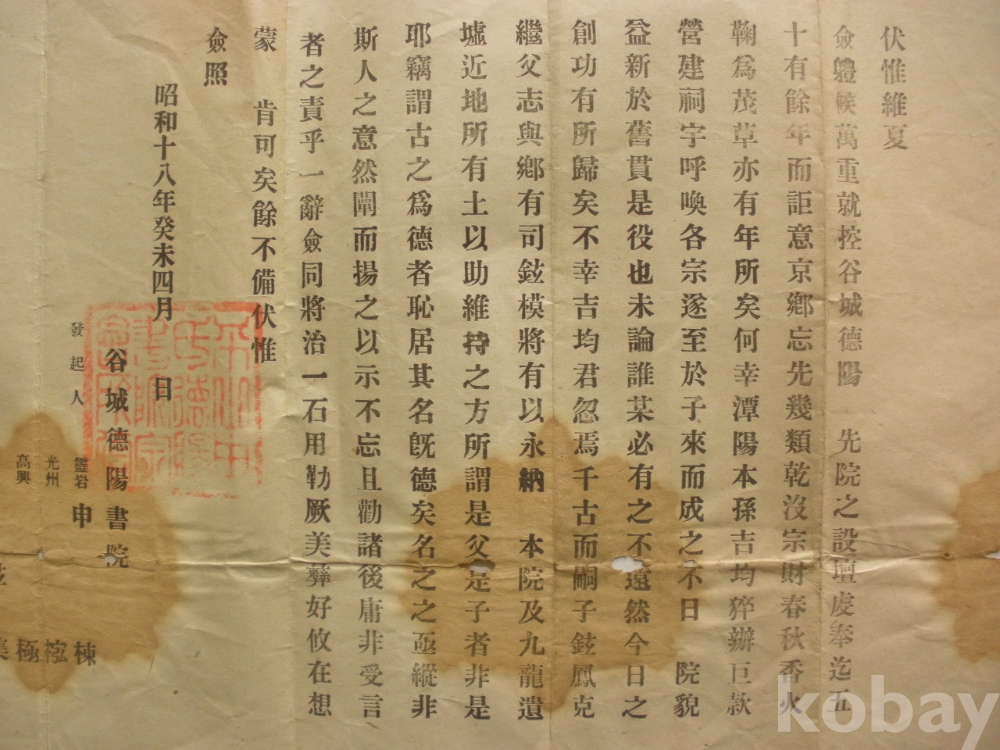 伏惟維夏
僉軆候萬重就控谷城德陽 先院之設壇虔奉迄五
十有餘年而詎意京鄉忘先幾類乾沒宗財春秋香火
鞠爲茂草亦有年所矣何幸潭陽本孫吉均猝辦巨款
營建祠宇呼喚各宗遂至於子來而成之不日 院貌
益新於舊貫是役也未論誰某必有之不遠然今日之
創功有所歸矣不幸吉均君忽焉千古而嗣子鉉鳳克
繼父志與鄉有司鉉模將有以永納 本院及九龍遺
墟近地所有土以助維持之方所謂是父是子者非是
耶竊謂古之爲德者恥居其名旣德矣名之之亟縱非
斯人之意然闡而揚之以示不忘且勸諸後庸非受言
者之責乎一辭僉同將治一石用勒厥美彛好攸在想
蒙 肯可矣餘不備伏惟
僉照
昭和十八年癸未四月 日
谷城德陽書院
發起人
靈岩 申 棟
光州
高興 極
kobay